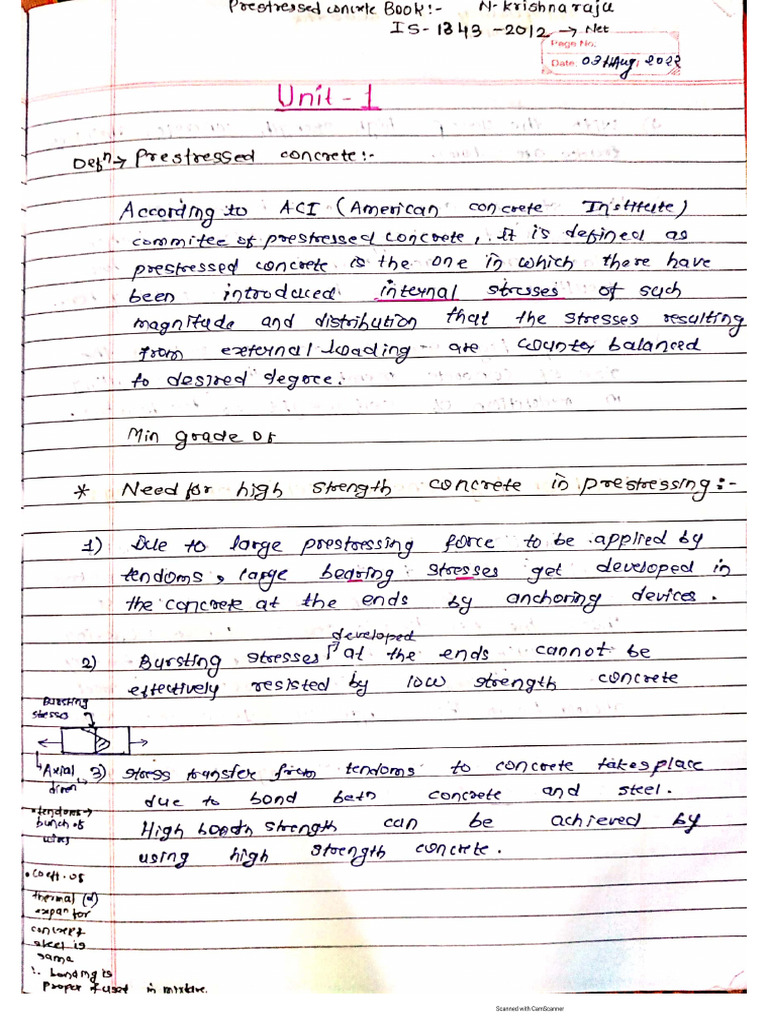 Prestressed concrete Book:- N-Krishna raju
IS-1343-2012 → Net
Page No.
Date: 03 Aug, 2022
Unit-1
Defⁿ → Prestressed concrete:-
According to ACI (American concrete Institute)
commitee of prestressed concrete, it is defined as
prestressed concrete is the one in which there have
been introduced internal stresses of such
magnitude and distribution that the stresses resulting
from external loading are counter balanced
to desired degree.
Min grade of
* Need for high strength concrete in prestressing:-
1) Due to large prestressing force to be applied by
tendoms, large bearing stresses get developed in
the concrete at the ends by anchoring devices.
developed
2) Bursting stresses at the ends cannot be
effectively resisted by low strength concrete
Bursting
stesses
Axial
diren
3) stress transfer from tendoms to concrete takes place
due to bond betn concrete and steel.
High bondn strength can be achieved by
using high strength concrete.
• tendoms →
bunch of
wires
• coeff. of
thermal (α)
expan for
concret &
steel is
same
∴ bonding is
proper if used in mixture.
Scanned with CamScanner